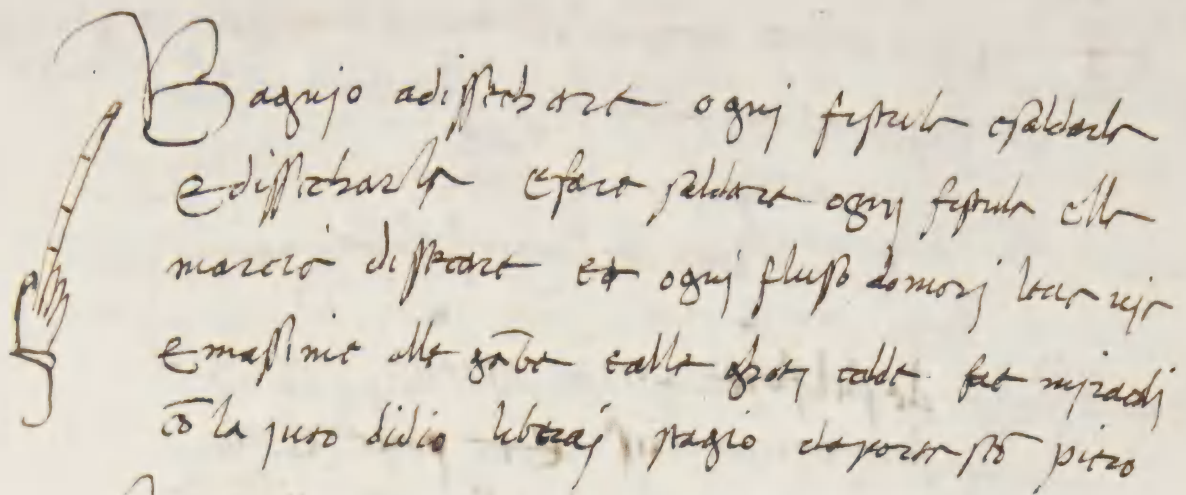 Bagnjo adissechare ognj fistula esaldarla
Edissecharla Efare saldare ognj fistula ella
marcia dissecare et ognj flusso domorj leua uja
Emassime alle gābe ealle ghotj calde fae mjracolj
cō la juto didio liberaj stagio daporta stō piero